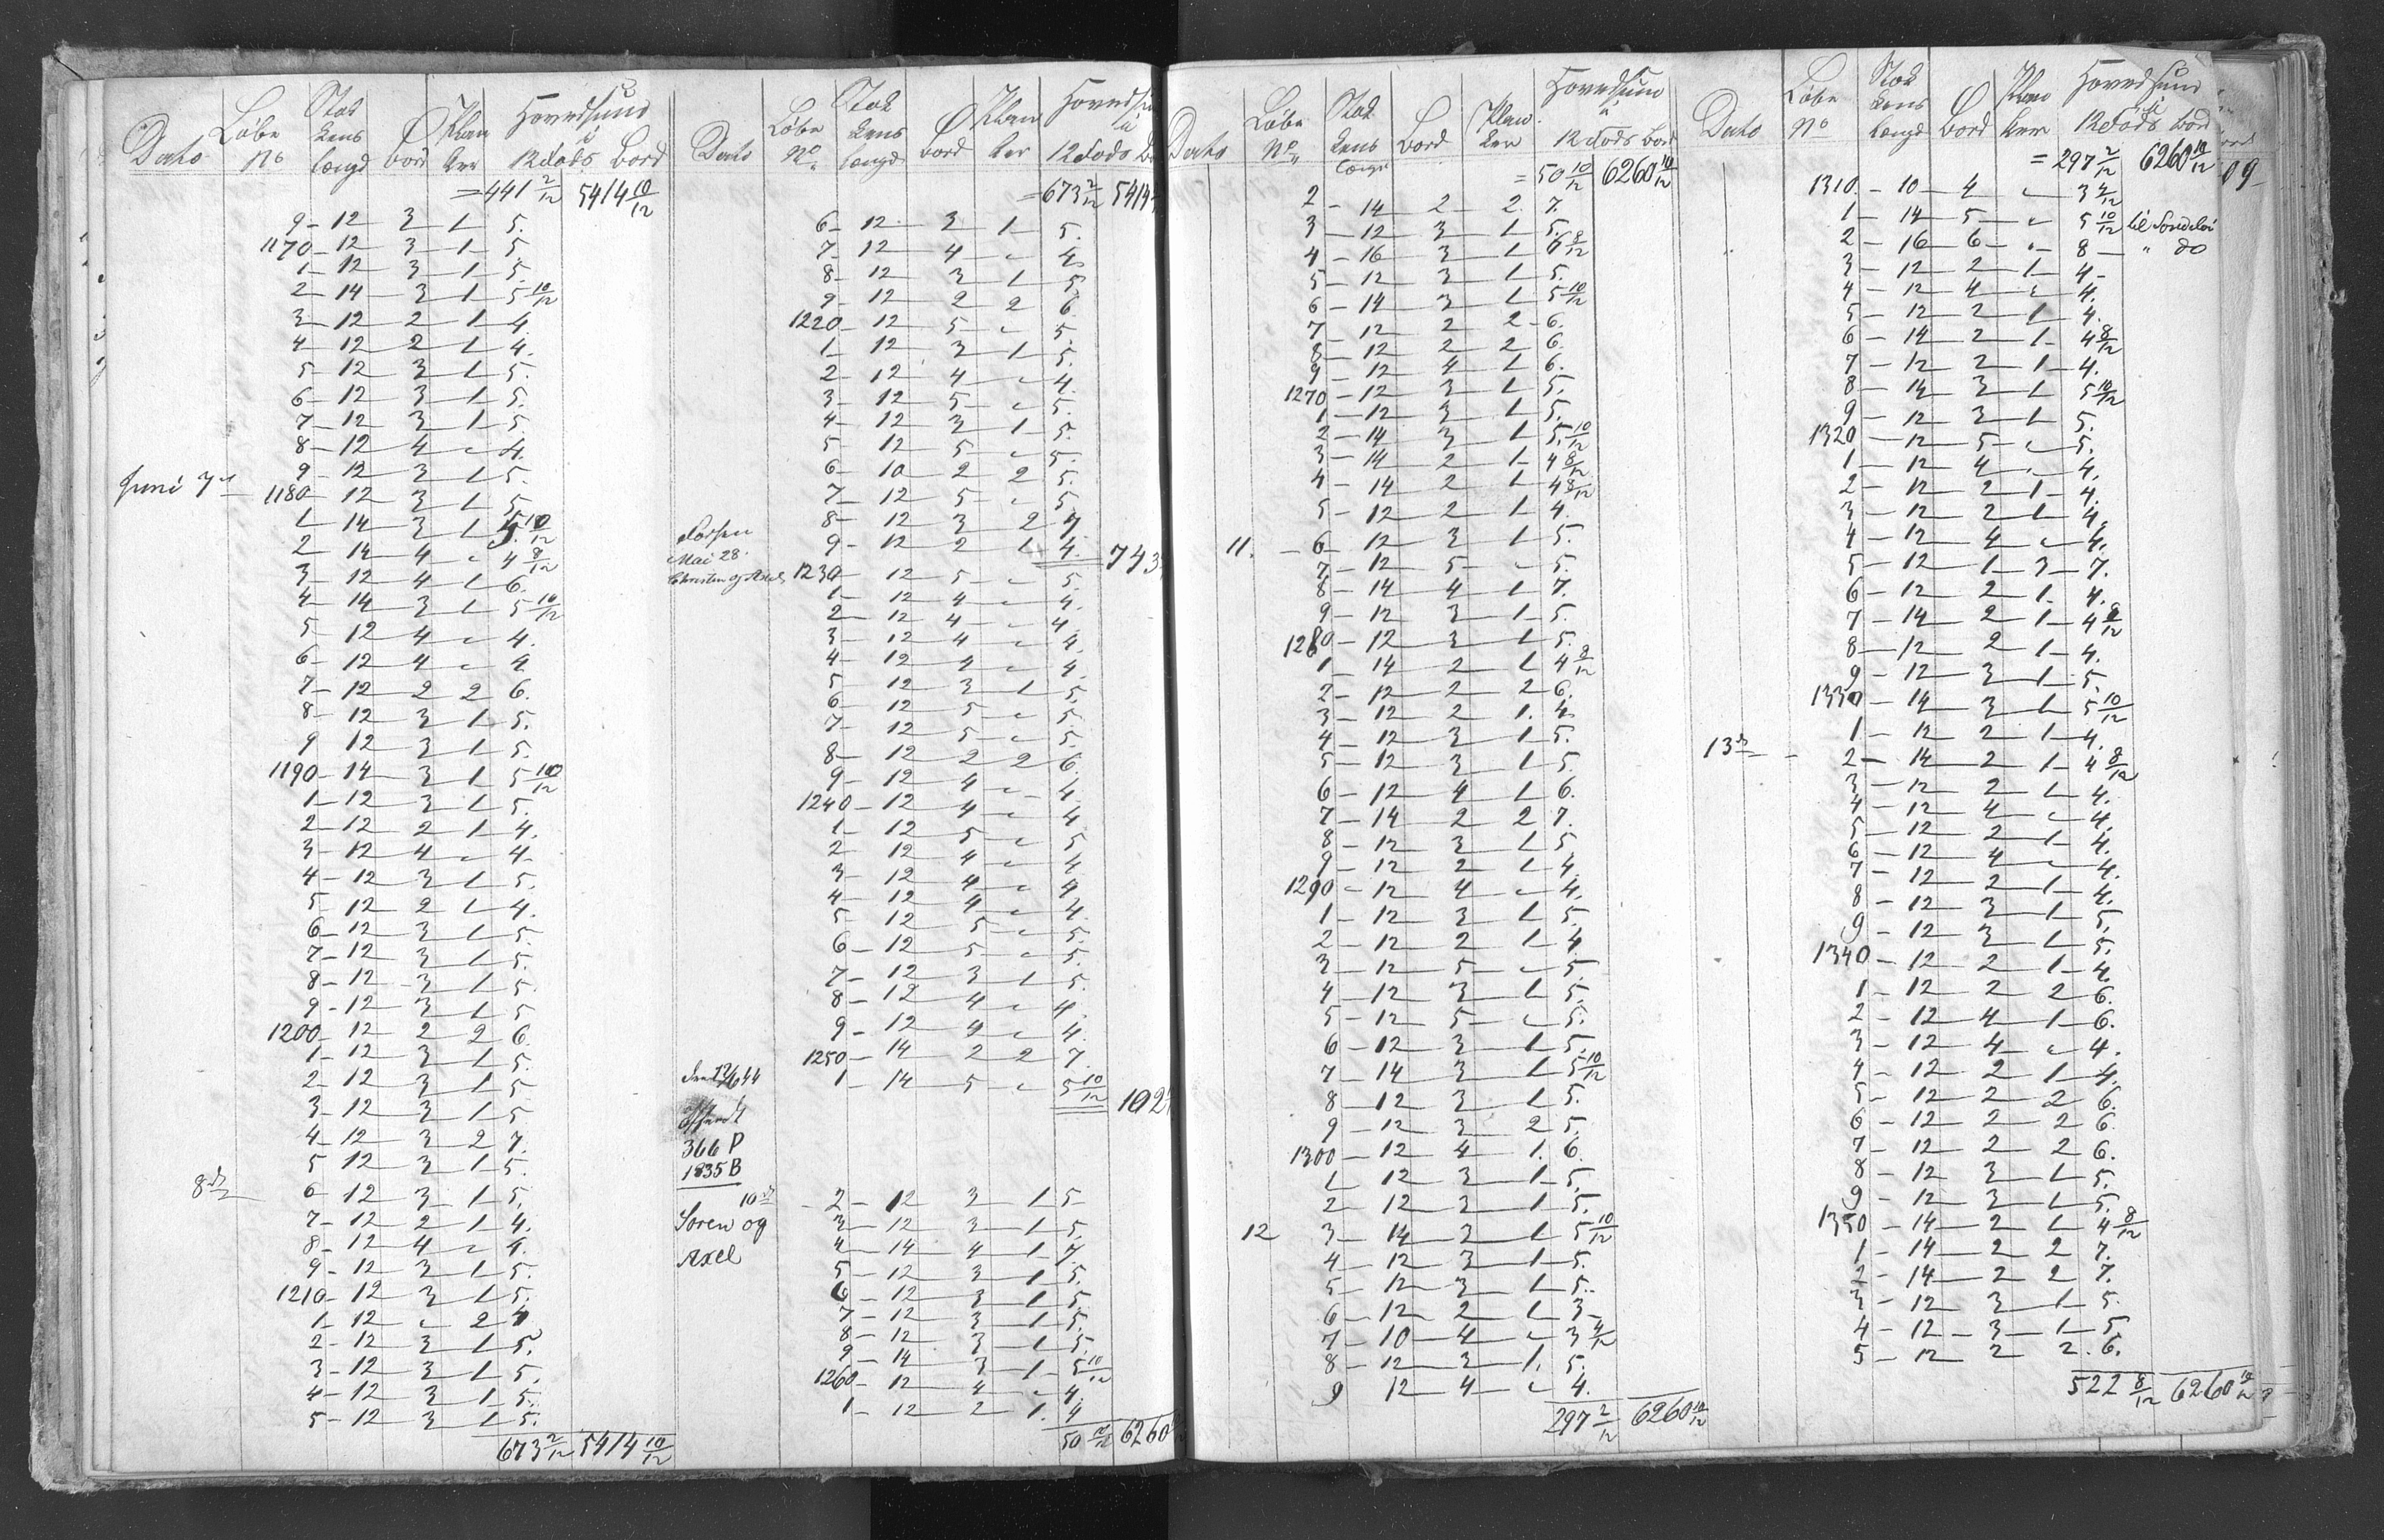 Dato Löbe No Stok kens længd Bord Plan ker Hovedsum à 12 Fods Bord
= 441 2/12 5414 10/12
9 - 12 - 3 - 1 5.
1170 - 12 - 3 - 1 5.
1 - 12 - 3 - 1 5.
2 - 14 - 3 - 1 5 10/12
3 - 12 - 2 - 1 4.
4 - 12 - 2 - 1 4.
5 - 12 - 3 - 1 5.
6 - 12 - 3 - 1 5.
7 - 12 - 3 - 1 5.
8 - 12 - 4 - " 4.
9 - 12 - 3 - 1 5.
Juni 7de 1180 - 12 - 3 - 1 5.
1 - 14 - 3 - 1 5. 10/12
2 - 14 - 4 - " 4 8/12
3 - 12 - 4 - 1 6.
4 - 14 - 3 - 1 5 10/12
5 - 12 - 4 - " 4.
6 - 12 - 4 - " 4
7 - 12 - 2 2 6.
8 - 12 - 3 - 1 5.
9 12 - 3 - 1 5.
1190 - 14 - 3 - 1 5 10/12
1 - 12 - 3 - 1 5.
2 - 12 - 2 - 1 4.
3 - 12 - 4 - " 4.
4 - 12 - 3 - 1 5.
5 - 12 - 2 - 1 4.
6 - 12 - 3 - 1 5.
7 - 12 - 3 - 1 5.
8 - 12 - 3 - 1 5.
9 - 12 - 3 - 1 5
1200 - 12 - 2 2 6.
1 - 12 - 3 - 1 5.
2 - 12 - 3 - 1 5
3 - 12 - 3 - 1 5
4 - 12 - 3 - 2 7.
5 12 - 3 - 1 5.
8de 6 - 12 - 3 - 1 5.
7 - 12 - 2 - 1 4.
8 - 12 - 4 - " 4.
9 - 12 - 3 - 1 5.
1210 - 12 - 3 - 1 5.
1 - 12 - " 2 4
2 - 12 - 3 - 1 5.
3 - 12 - 3 - 1 5.
4 - 12 - 3 - 1 5.
5 - 12 - 3 - 1 5.
673 2/12 5414 10/12
Dato Löbe No Stok kens længd Bord Plan ker Hovedsu à 12 Fods
= 673 2/12 5414
6 - 12 - 3 - 1 5.
7 - 12 - 4 - " 4
8 - 12 - 3 - 1 5
9 - 12 - 2 2 6.
1220 - 12 - 5 - " 5.
1 - 12 - 3 - 1 5.
2 - 12 - 4 - " 4.
3 - 12 - 5 - " 5.
4 - 12 - 3 - 1 5.
5 12 - 5 - " 5.
6 - 10 - 2 2 5.
7 - 12 - 5 - " 5
8 - 12 - 3 2 7
9 - 12 - 2 - 1 4. 743
Mai 28.
Christen og Axel 1230 - 12 - 5 - " 5.
1 - 12 - 4 - " 4.
2 - 12 - 4 - " 4
3 - 12 - 4 - " 4
4 - 12 - 4 - " 4.
5 12 - 3 - 1 5.
6 - 12 - 5 - " 5.
7 - 12 - 5 - " 5.
8 - 12 - 2 2 6.
9 - 12 - 4 - " 4
1240 - 12 - 4 - " 4
1 - 12 - 5 - " 5
2 - 12 - 4 - " 4
3 - 12 - 4 - " 4
4 - 12 - 4 - " 4.
5 12 5 - " 5.
6 - 12 - 5 - " 5.
7 - 12 - 3 - 1 5.
8 - 12 - 4 - " 4.
9 - 12 - 4 - " 4.
1250 - 14 - 2 2 7.
1 - 14 - 5 - " 5 10/12 102
366 P
1835 B
10de 2 - 12 - 3 - 1 5
Soren og 3 - 12 - 3 - 1 5.
Axel 4 - 14 - 4 - 1 7
5 - 12 - 3 - 1 5.
6 - 12 - 3 - 1 5
7 - 12 - 3 - 1 5.
8 - 12 - 3 - 1 5.
9 - 14 3 - 1 - 5 10/12
1260 - 12 - 4 - " 4.
1 - 12 - 2 - 1. 4
50 10/12 6260
Dato Löbe No Stok kens længd Bord Plan ker Hovedsum à 12 Fods Bord
= 50 10/12 6260 10/12
2 - 14 - 2 - 2. 7.
3 - 12 - 3 - 1 5.
4 - 16 - 3 - 1 6 8/12
5 - 12 - 3 - 1 5.
6 - 14 - 3 - 1 5 10/12
7 - 12 - 2 2 - 6.
8 - 12 - 2 2 6
9 - 12 - 4 - 1 6.
1270 - 12 - 3 - 1 5.
1 - 12 - 3 - 1 5.
2 - 14 - 3 - 1 5. 10/12
3 - 14 - 2 - 1 - 4 8/12
4 - 14 - 2 - 1 4 8/12
5 - 12 - 2 - 1 4.
11. 6 - 12 - 3 - 1 5.
7 - 12 - 5 - " 5.
8 - 14 - 4 - 1 7.
9 - 12 - 3 - 1 - 5.
1280 - 12 - 3 - 1 5.
1 14 - 2 - 1 4 8/12
2 - 12 - 2 - 2 6.
3 - 12 - 2 - 1. 4
4 - 12 - 3 - 1 5.
5 - 12 - 3 - 1 5.
6 - 12 - 4 - 1 6.
7 - 14 - 2 - 2 7.
8 - 12 - 3 - 1 5
9 - 12 - 2 - 1 4.
1290 - 12 - 4 - " 4.
1 - 12 - 3 - 1 5.
2 - 12 - 2 - 1 4
3 - 12 - 5 - " 5.
4 - 12 - 3 - 1 5.
5 - 12 - 5 - " 5.
6 - 12 - 3 - 1 5.
7 - 14 - 3 - 1 5 10/12
8 - 12 - 3 - 1 5.
9 - 12 - 3 - 2 5.
1300 - 12 - 4 - 1. 6.
1 12 - 3 - 1 - 5.
2 - 12 - 3 - 1 5.
12 3 - 14 - 3 - 1 5 10/12
4 - 12 - 3 - 1 - 5.
5 - 12 - 3 - 1 5.
6 - 12 - 2 - 1 3 -
7 - 10 - 4 - " 3 4/12
8 - 12 - 3 - 1. 5.
9 12 - 4 - " 4.
297 2/12 6260 10/12
Dato Löbe No Stok kens længd Bord Plan ker Hovedsum à 12 Fods Bord
= 297 2/12 6260 10/12
1310 - 10 - 4 - " - 3 4/12
1 - 14 - 5 - " 5 10/12 til
2 - 16 - 6 - " - 8 - " do
3 - 12 - 2 - 1 - 4 -
4 - 12 - 4 - " 4.
5 - 12 - 2 - 1 4.
6 - 14 - 2 - 1 - 4 8/12
7 - 12 - 2 - 1 - 4.
8 - 14 - 3 - 1 5 10/12
9 - 12 - 3 - 1 5.
1320 - 12 - 5 - " 5.
1 - 12 - 4 - " 4.
2 - 12 - 2 - 1 - 4.
3 - 12 - 2 - 1 4.
4 - 12 - 4 - " 4.
5 - 12 - 1 - 3 - 7.
6 - 12 - 2 - 1 - 4.
7 - 14 - 2 - 1 - 4 8/12
8 - 12 - 2 - 1 - 4.
9 - 12 - 3 - 1 - 5.
1330 - 14 - 3 - 1 5 10/12
1 - 12 - 2 - 1 4.
13de 2 - 14 - 2 - 1 - 4 8/12
3 - 12 - 2 - 1 4.
4 - 12 - 4 - " 4.
5 - 12 - 2 - 1 - 4.
6 - 12 - 4 - " 4.
7 - 12 - 2 - 1 - 4.
8 - 12 - 3 - 1 5.
9 - 12 - 3 - 1 5.
1340 - 12 - 2 - 1 - 4.
1 - 12 - 2 2 6.
2 - 12 - 4 - 1 - 6.
3 - 12 - 4 - " 4.
4 - 12 - 2 - 1 - 4.
5 - 12 - 2 - 2 6.
6 - 12 - 2 - 2 6.
7 - 12 - 2 - 2 6.
8 - 12 - 3 - 1 - 5.
9 - 12 - 3 - 1 5.
1350 - 14 - 2 - 1 - 4 8/12
1 - 14 - 2 2 7.
2 - 14 - 2 2 7.
3 - 12 - 3 - 1 - 5.
4 - 12 - 3 - 1 - 5
5 - 12 2 2. 6.
522 8/12 6260 10/12